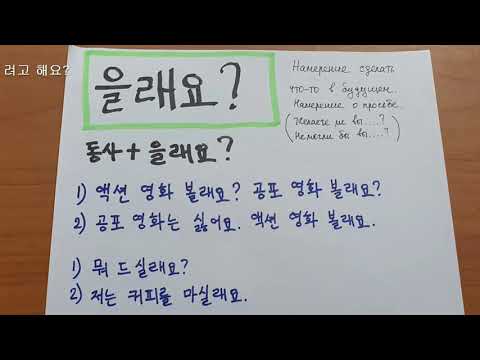 려고 해요?
을래요?
Намерение сделать
что-то в будущем.
Намерение о просьбе.
(Желаете ли вы....?
Не могли бы вы....?)
동사 + 을래요?
1) 액션 영화 볼래요? 공포 영화 볼래요?
2) 공포 영화는 싫어요. 액션 영화 볼래요.
1) 뭐 드실래요?
2) 저는 커피를 마실래요.